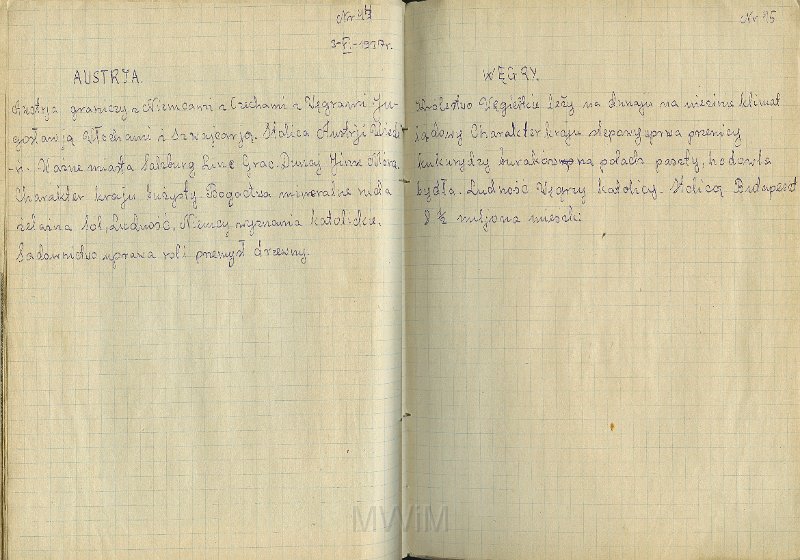 Nr 14
3-VI-1937r.
AUSTRJA.
Austrja graniczy z Niemcami z Czechami z Węgrami Ju-
gosławją Włochami i Szwajcarją. Stolica Austrji Wiedeń
Ważne miasta Salzburg Linc Grac. Dunaj
Charakter kraju Bogactwa mineralne ruda
żelazna sól, Ludność, Niemcy wyznania katolickie.
Sadownictwo uprawa roli przemysł drzewny.
Nr 15
WĘGRY.
Królestwo Węgielskie leży na Dunaju na klimat
lądowy Charakter kraju stepowy uprawa pszenicy
kukurydzy buraków na polach pasely, hodowla
bydła. Ludność Węgrzy katolicy. Stolica Budapeszt
8 ½ miljona mieszk:
MWiM